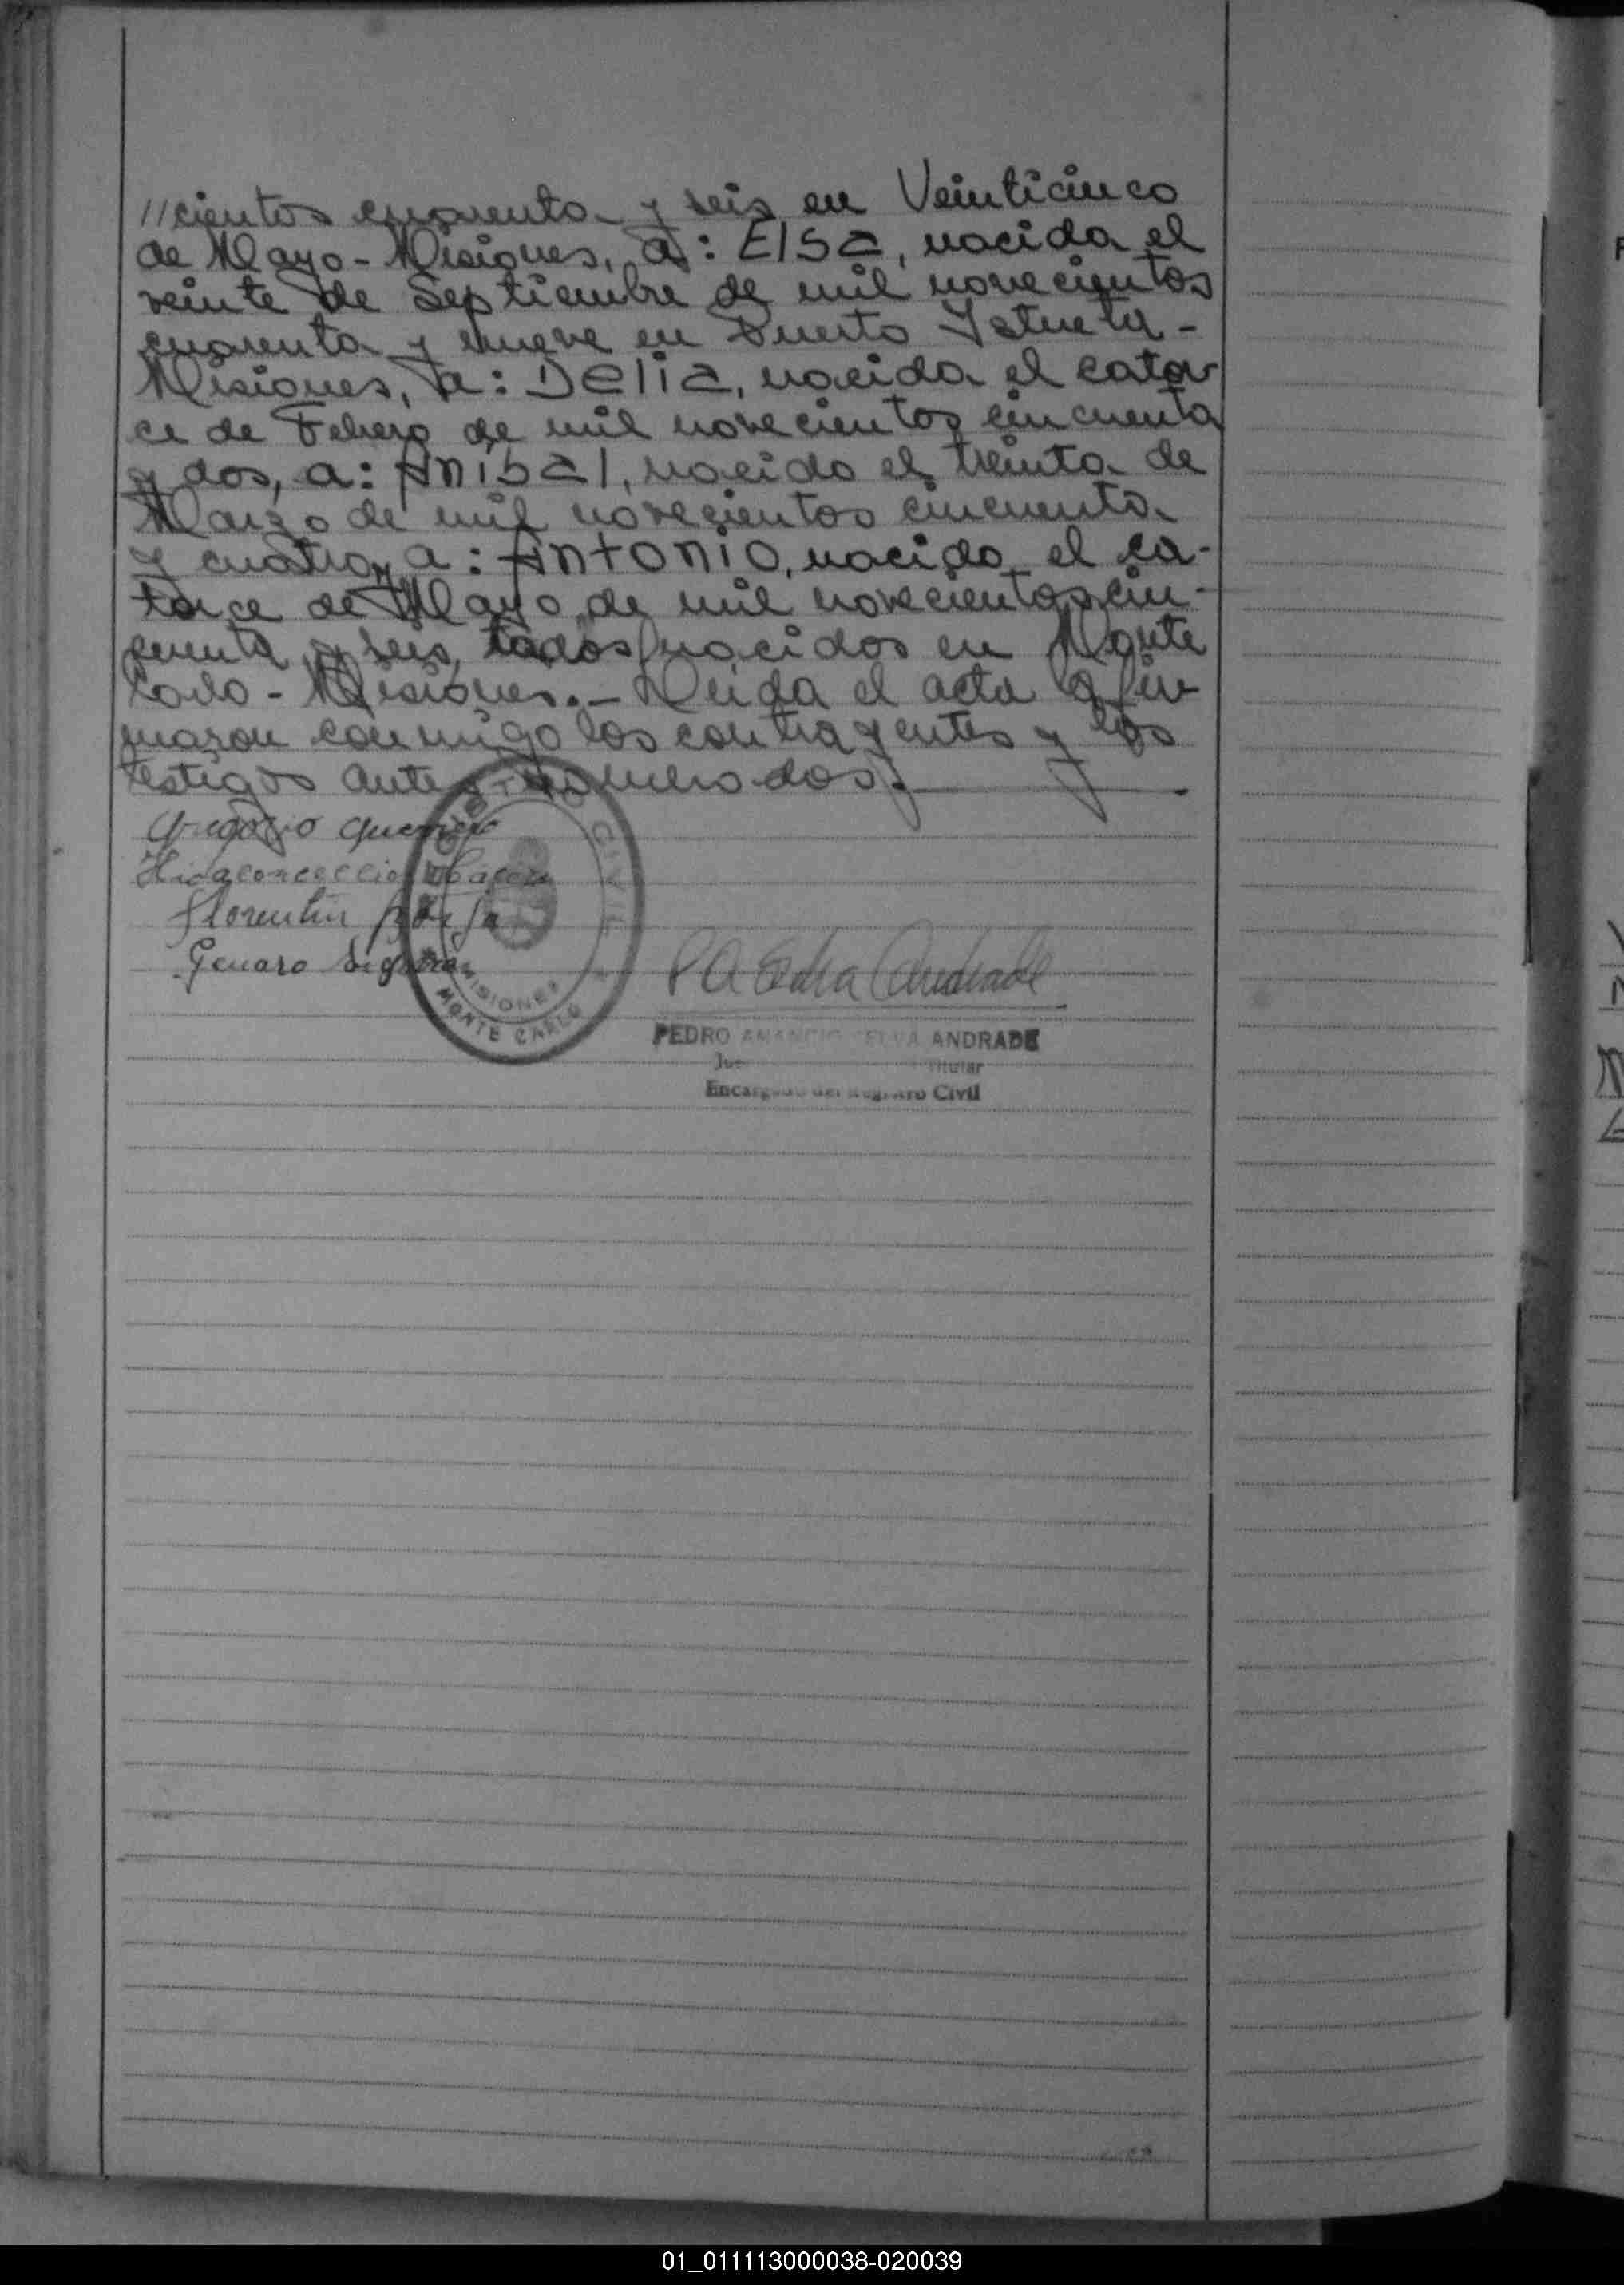 //cientos cuarenta y seis en Veinticinco
de Mayo - Misiones, a: Elsa, nacida el
veinte de Septiembre de mil novecientos
cuarenta y nueve en Puerto Istueta -
Misiones, a: Delia, nacida el cator
ce de Febrero de mil novecientos cincuenta
y dos, a: Anibal, nacido el treinta de
Marzo de mil novecientos cincuenta
y cuatro, a: Antonio, nacido el ca-
torce de Mayo de mil novecientos cin-
cuenta y seis, todos nacidos en Monte
Carlo - Misiones. - Leida el acta la fir
maron conmigo los contrayentes y los
testigos antes nombrados.
Gregorio
Florentin
Genaro
REGISTRO CIVIL
MISIONES
MONTE CARLO
PEDRO AMANCIO SELVA ANDRADE
Titular
Encargado del Registro Civil
01_011113000038-020039